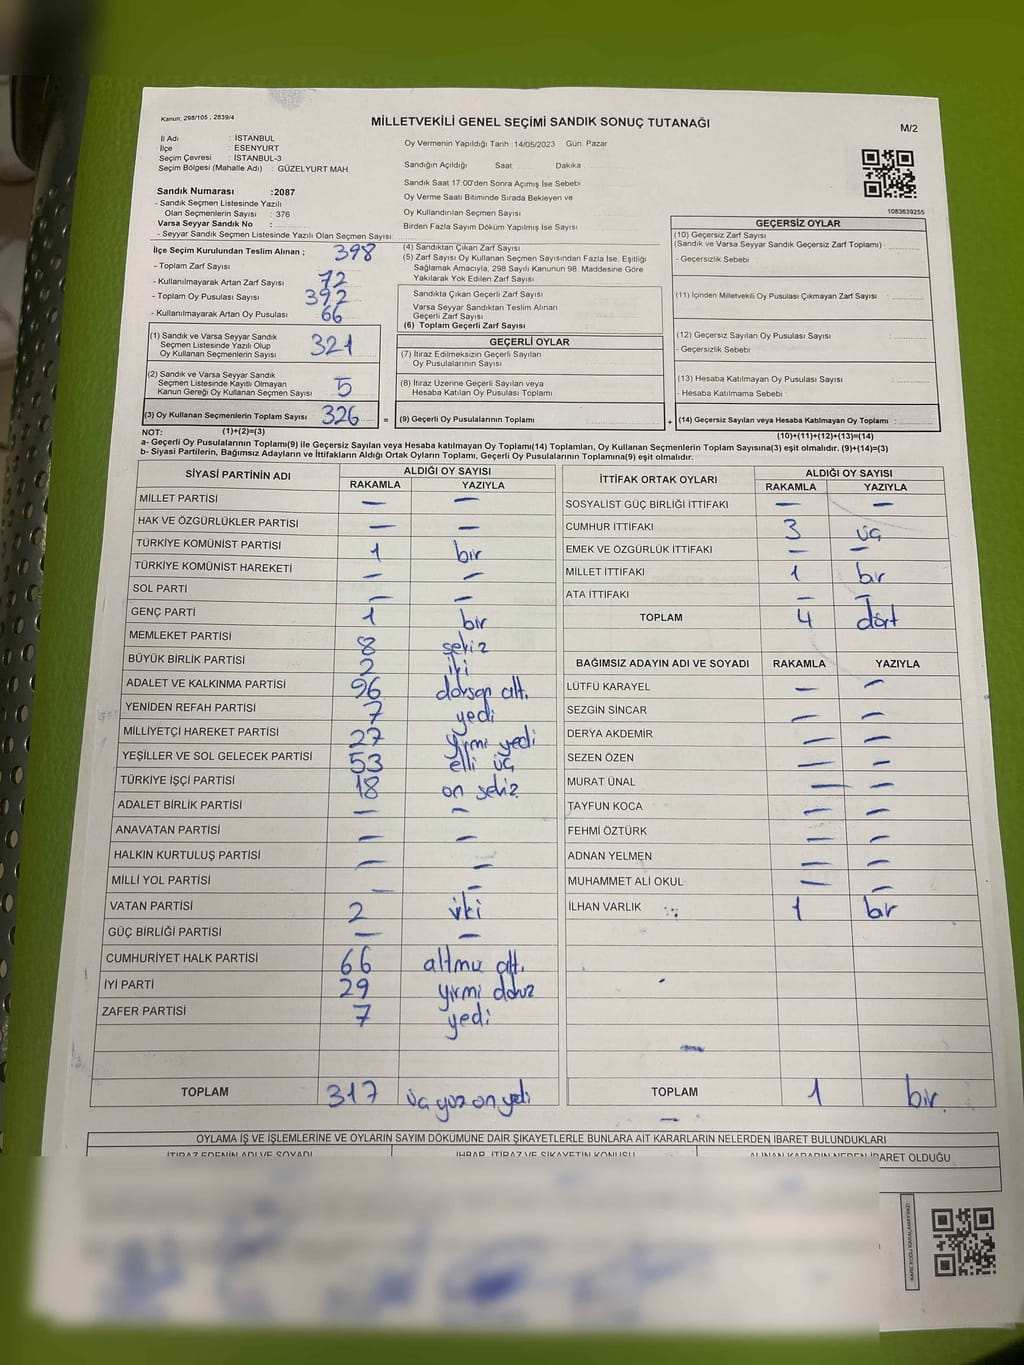 Kanun, 298/105 , 2839/4
MİLLETVEKİLİ GENEL SEÇİMİ SANDIK SONUÇ TUTANAĞI
M/2
İl Adı : İSTANBUL
İlçe : ESENYURT
Seçim Çevresi : İSTANBUL-3
Seçim Bölgesi (Mahalle Adı) : GÜZELYURT MAH.
Oy Vermenin Yapıldığı Tarih :14/05/2023 Gün: Pazar
Sandığın Açıldığı Saat Dakika
Sandık Saat 17.00'den Sonra Açımış İse Sebebi
Oy Verme Saati Bitiminde Sırada Bekleyen ve
Oy Kullandırılan Seçmen Sayısı
Birden Fazla Sayım Döküm Yapılmış İse Sayısı
1083639255
Sandık Numarası :2087
- Sandık Seçmen Listesinde Yazılı
Olan Seçmenlerin Sayısı : 376
Varsa Seyyar Sandık No :
- Seyyar Sandık Seçmen Listesinde Yazılı Olan Seçmen Sayısı:
İlçe Seçim Kurulundan Teslim Alınan ;
- Toplam Zarf Sayısı 398
- Kullanılmayarak Artan Zarf Sayısı 72
- Toplam Oy Pusulası Sayısı 392
- Kullanılmayarak Artan Oy Pusulası 66
(1) Sandık ve Varsa Seyyar Sandık
Seçmen Listesinde Yazılı Olup
Oy Kullanan Seçmenlerin Sayısı 321
(2) Sandık ve Varsa Seyyar Sandık
Seçmen Listesinde Kayıtlı Olmayan
Kanun Gereği Oy Kullanan Seçmen Sayısı 5
(3) Oy Kullanan Seçmenlerin Toplam Sayısı 326 =
(4) Sandıktan Çıkan Zarf Sayısı
(5) Zarf Sayısı Oy Kullanan Seçmen Sayısından Fazla İse, Eşitliği
Sağlamak Amacıyla, 298 Sayılı Kanunun 98. Maddesine Göre
Yakılarak Yok Edilen Zarf Sayısı
Sandıkta Çıkan Geçerli Zarf Sayısı
Varsa Seyyar Sandıktan Teslim Alınan
Geçerli Zarf Sayısı
(6) Toplam Geçerli Zarf Sayısı
GEÇERLİ OYLAR
(7) İtiraz Edilmeksizin Geçerli Sayılan
Oy Pusulalarının Sayısı
(8) İtiraz Üzerine Geçerli Sayılan veya
Hesaba Katılan Oy Pusulası Toplamı
(9) Geçerli Oy Pusulalarının Toplamı +
GEÇERSİZ OYLAR
(10) Geçersiz Zarf Sayısı
(Sandık ve Varsa Seyyar Sandık Geçersiz Zarf Toplamı) :
- Geçersizlik Sebebi :
(11) İçinden Milletvekili Oy Pusulası Çıkmayan Zarf Sayısı :
(12) Geçersiz Sayılan Oy Pusulası Sayısı :
- Geçersizlik Sebebi :
(13) Hesaba Katılmayan Oy Pusulası Sayısı :
- Hesaba Katılmama Sebebi :
(14) Geçersiz Sayılan veya Hesaba Katılmayan Oy Toplamı :
NOT: (1)+(2)=(3)
(10)+(11)+(12)+(13)=(14)
a- Geçerli Oy Pusulalarının Toplamı(9) ile Geçersiz Sayılan veya Hesaba katılmayan Oy Toplamı(14) Toplamları, Oy Kullanan Seçmenlerin Toplam Sayısına(3) eşit olmalıdır. (9)+(14)=(3)
b- Siyasi Partilerin, Bağımsız Adayların ve İttifakların Aldığı Ortak Oyların Toplamı, Geçerli Oy Pusulalarının Toplamına(9) eşit olmalıdır.
SİYASİ PARTİNİN ADI ALDIĞI OY SAYISI
RAKAMLA YAZIYLA
MİLLET PARTİSİ — —
HAK VE ÖZGÜRLÜKLER PARTİSİ — —
TÜRKİYE KOMÜNİST PARTİSİ 1 bir
TÜRKİYE KOMÜNİST HAREKETİ — —
SOL PARTİ — —
GENÇ PARTİ 1 bir
MEMLEKET PARTİSİ 8 sekiz
BÜYÜK BİRLİK PARTİSİ 2 iki
ADALET VE KALKINMA PARTİSİ 96 doksan alt.
YENİDEN REFAH PARTİSİ 7 yedi
MİLLİYETÇİ HAREKET PARTİSİ 27 yirmi yedi
YEŞİLLER VE SOL GELECEK PARTİSİ 53 elli üç
TÜRKİYE İŞÇİ PARTİSİ 18 on sekiz
ADALET BİRLİK PARTİSİ — —
ANAVATAN PARTİSİ — —
HALKIN KURTULUŞ PARTİSİ — —
MİLLİ YOL PARTİSİ — —
VATAN PARTİSİ 2 iki
GÜÇ BİRLİĞİ PARTİSİ — —
CUMHURİYET HALK PARTİSİ 66 altmış alt.
İYİ PARTİ 29 yirmi dokuz
ZAFER PARTİSİ 7 yedi
TOPLAM 317 üç yüz on yedi
İTTİFAK ORTAK OYLARI ALDIĞI OY SAYISI
RAKAMLA YAZIYLA
SOSYALİST GÜÇ BİRLİĞİ İTTİFAKI — —
CUMHUR İTTİFAKI 3 üç
EMEK VE ÖZGÜRLÜK İTTİFAKI — —
MİLLET İTTİFAKI 1 bir
ATA İTTİFAKI — —
TOPLAM 4 dört
BAĞIMSIZ ADAYIN ADI VE SOYADI RAKAMLA YAZIYLA
LÜTFÜ KARAYEL — —
SEZGİN SİNCAR — —
DERYA AKDEMİR — —
SEZEN ÖZEN — —
MURAT ÜNAL — —
TAYFUN KOCA — —
FEHMİ ÖZTÜRK — —
ADNAN YELMEN — —
MUHAMMET ALİ OKUL — —
İLHAN VARLIK 1 bir
TOPLAM 1 bir
OYLAMA İŞ VE İŞLEMLERİNE VE OYLARIN SAYIM DÖKÜMÜNE DAİR ŞİKAYETLERLE BUNLARA AİT KARARLARIN NELERDEN İBARET BULUNDUKLARI
İTİRAZ EDENİN ADI VE SOYADI İHBAR, İTİRAZ VE ŞİKAYETİN KONUSU ALINAN KARARIN NEDEN İBARET OLDUĞU
KARE KODU KARALAMAYINIZ!